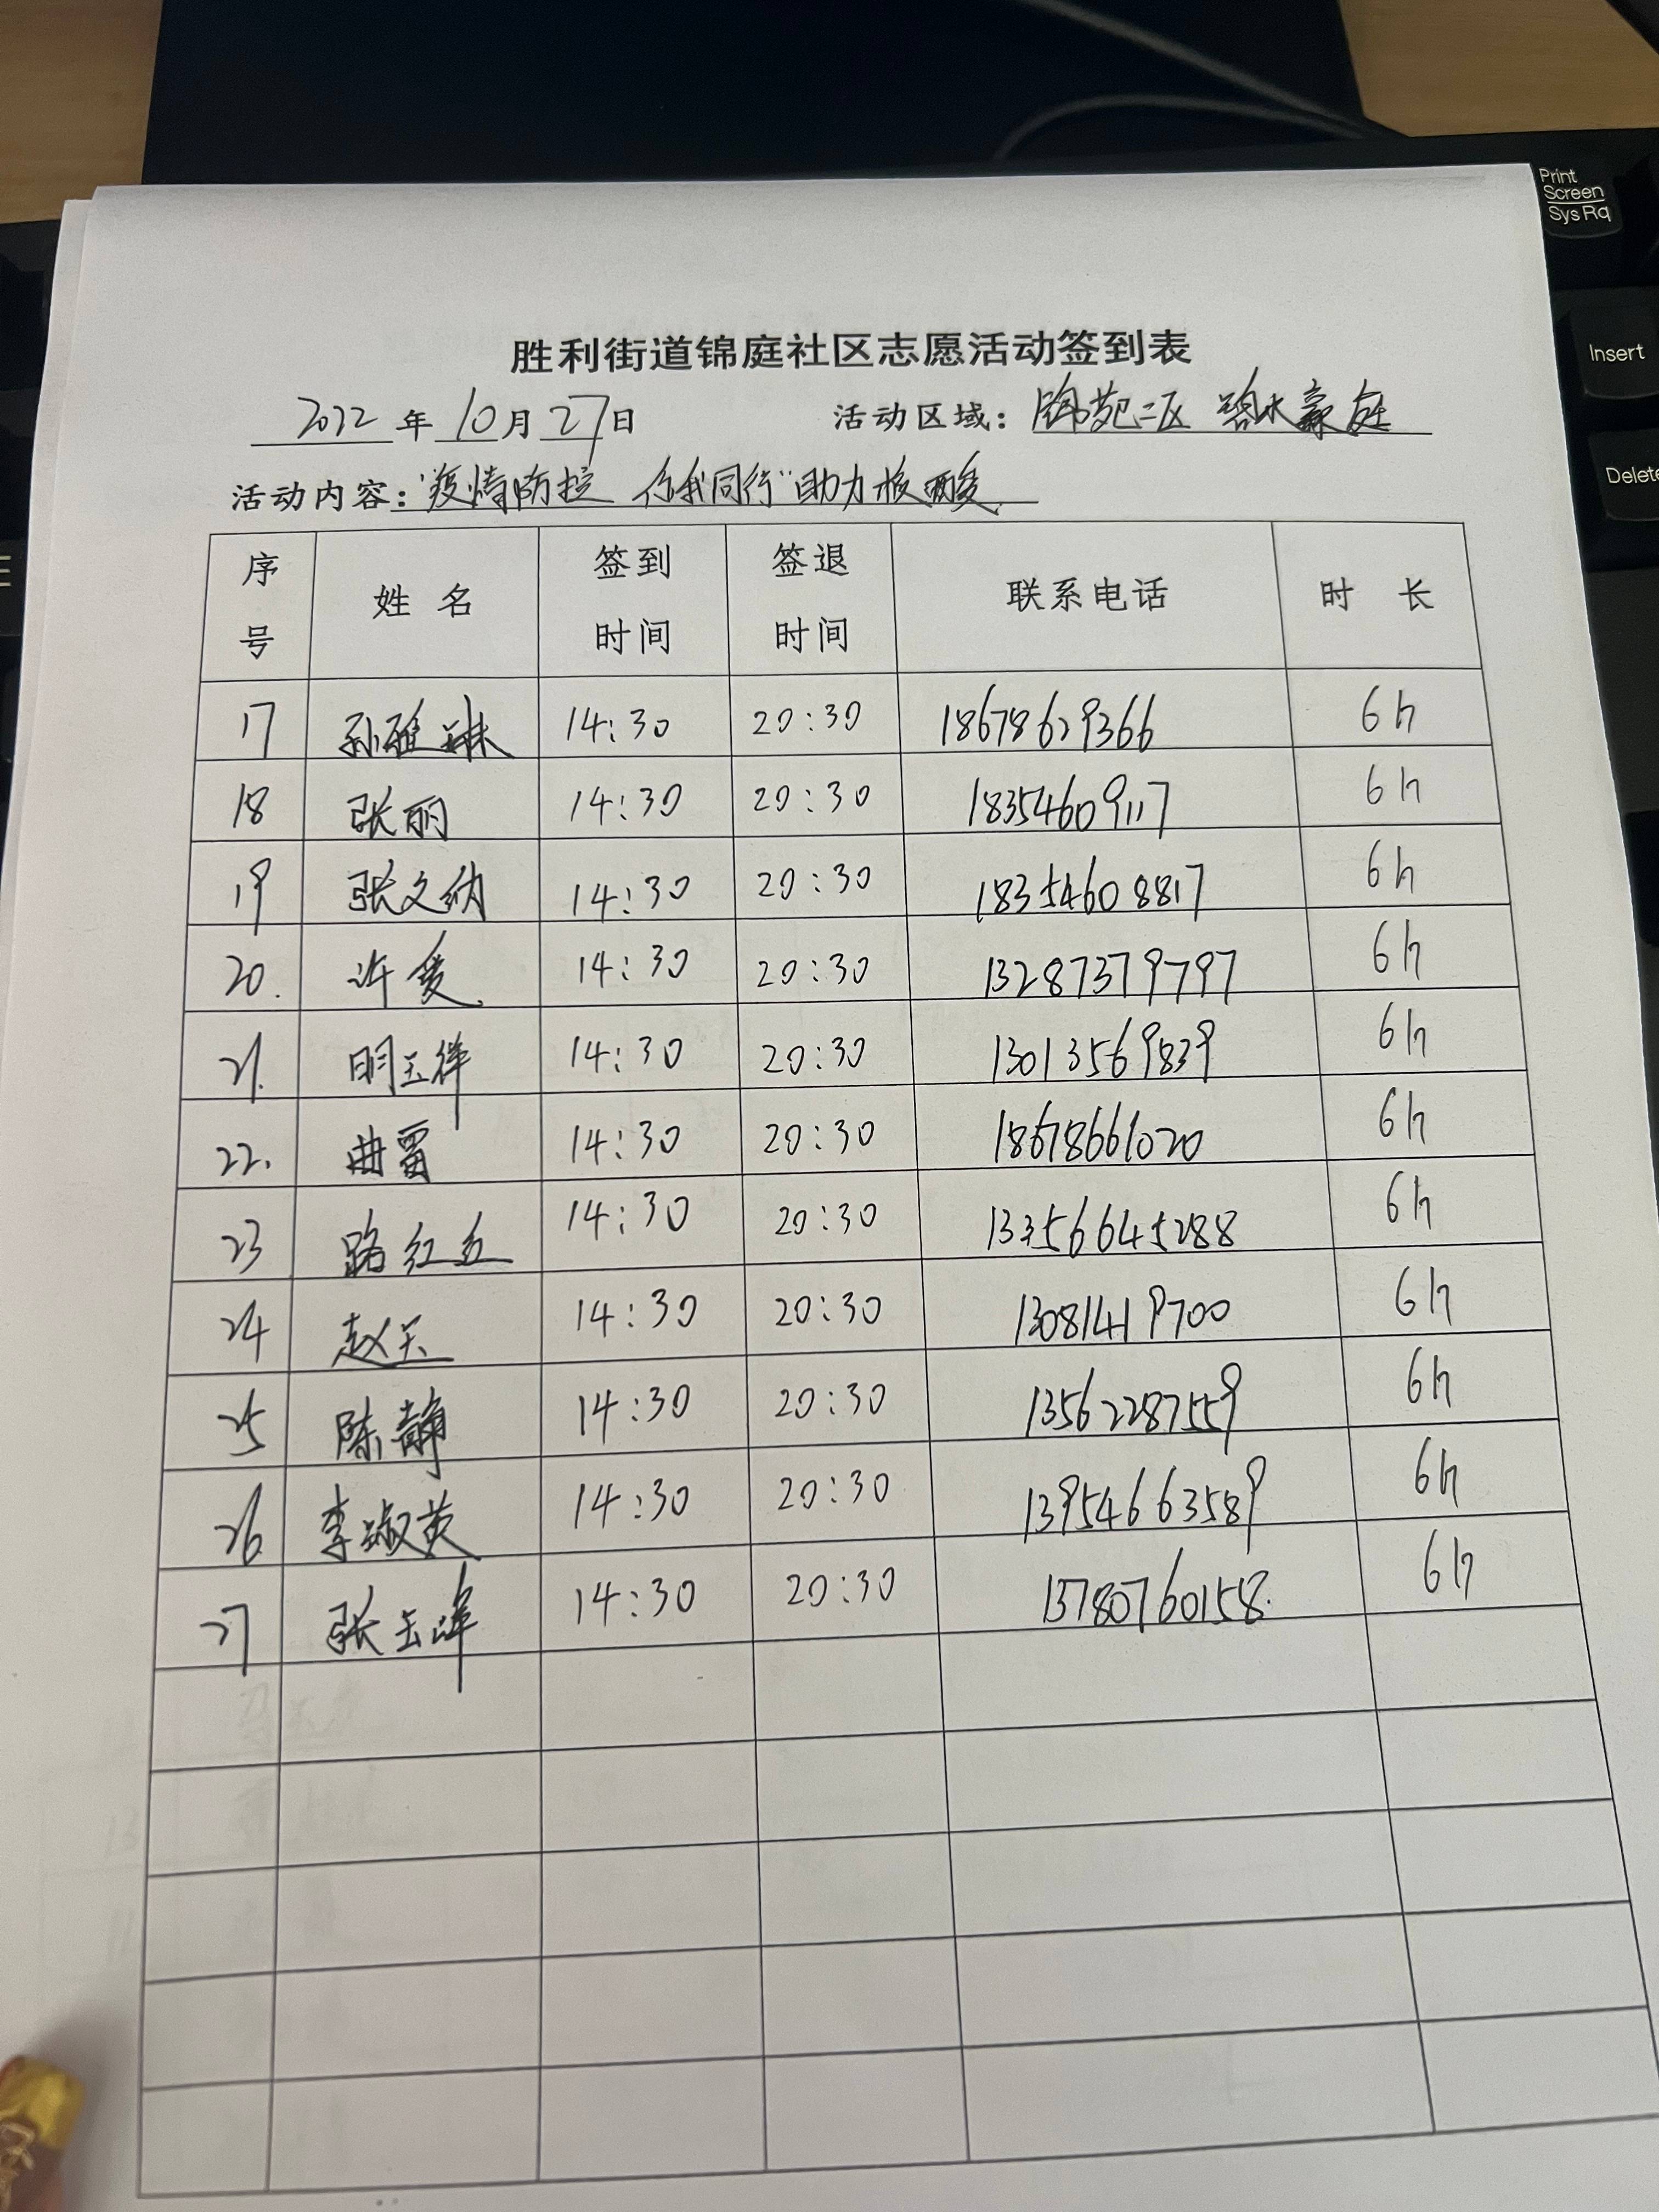 Print
Screen
Sys Rq
Insert
Delete
胜利街道锦庭社区志愿活动签到表
2022年10月27日 活动区域：锦苑二区 碧水豪庭
活动内容："疫情防控 你我同行"助力核酸
序号 姓名 签到时间 签退时间 联系电话 时长
17 孙雅琳 14:30 20:30 18678629366 6h
18 张丽 14:30 20:30 18354609117 6h
19 张文纳 14:30 20:30 18354608817 6h
20. 许爱 14:30 20:30 13287379797 6h
21. 明玉祥 14:30 20:30 13013569839 6h
22. 曲雷 14:30 20:30 18678661020 6h
23 路红 14:30 20:30 13356645288 6h
24 赵玉 14:30 20:30 13081419700 6h
25 陈静 14:30 20:30 13562287559 6h
26 李淑英 14:30 20:30 13954663589 6h
27 张玉峰 14:30 20:30 13780760158. 6h